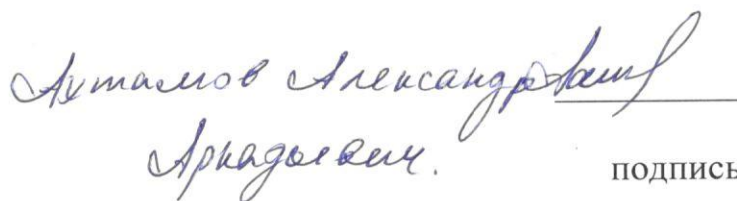 Ахтамов Александр
Аркадьевич.
подпись